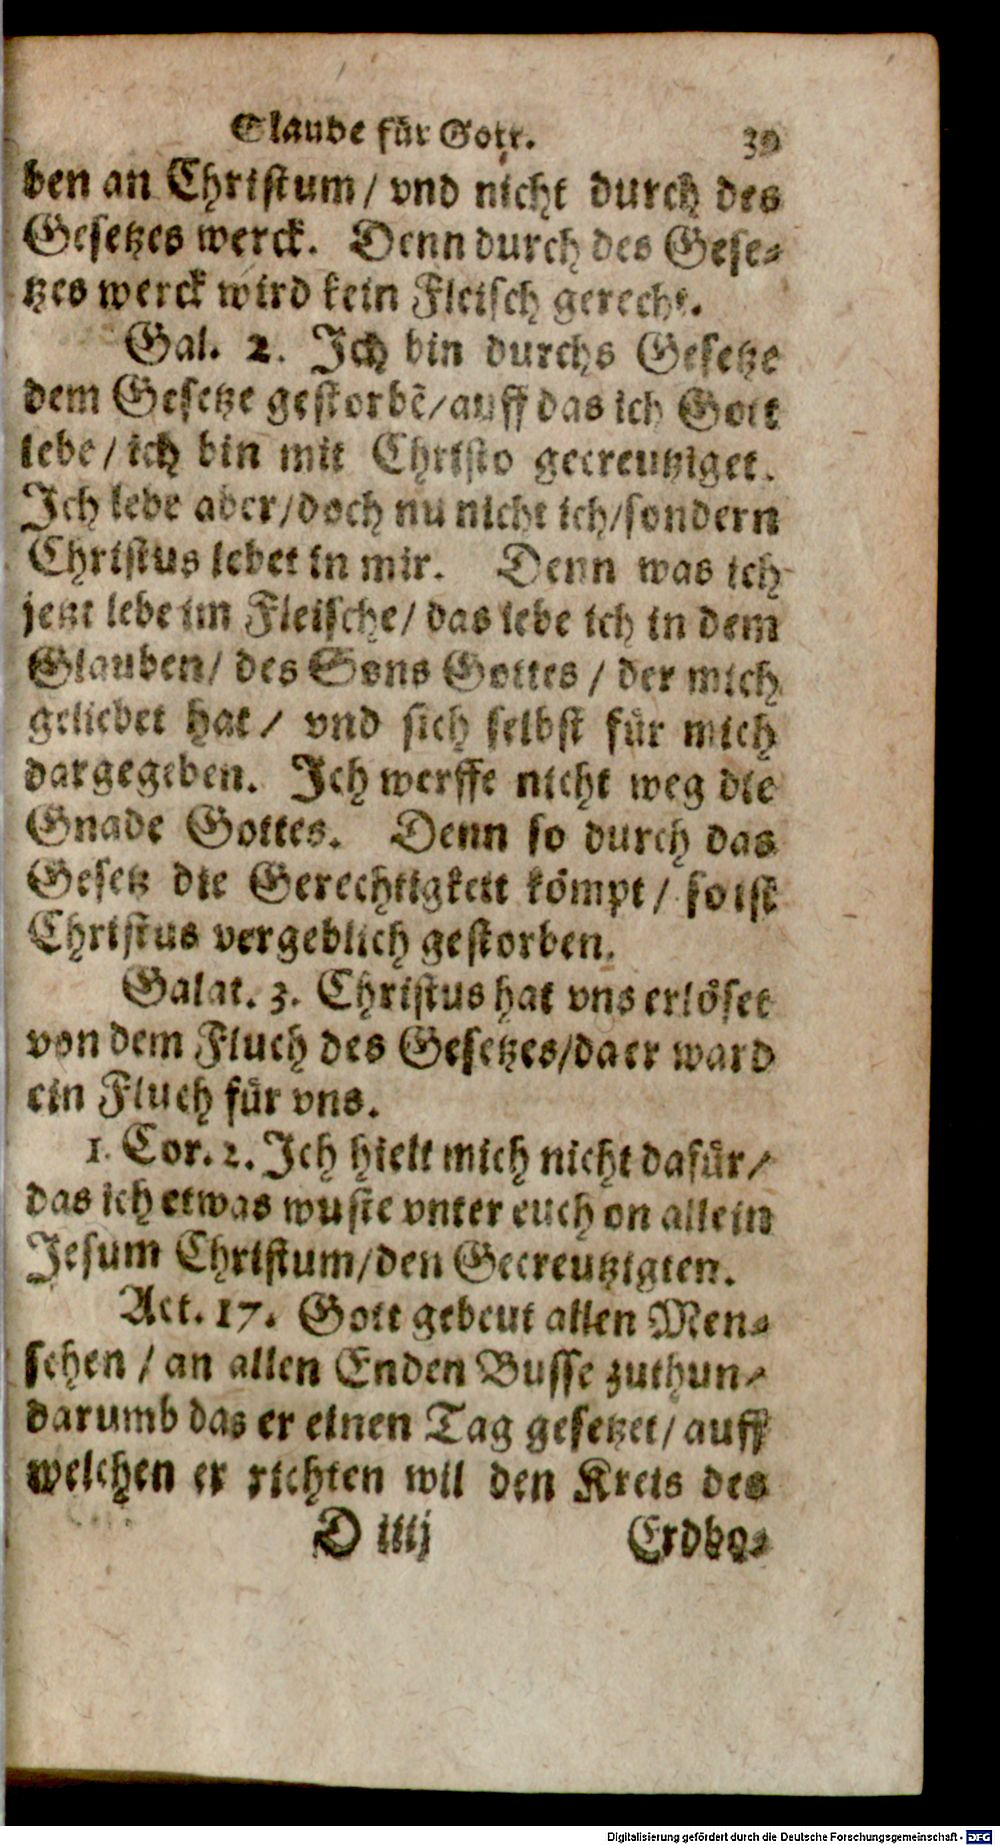 Glaube für Gott. 39
ben an Christum / vnd nicht durch des
Gesetzes werck. Denn durch des Gese-
tzes werck wird kein Fleisch gerecht.
Gal. 2. Ich bin durchs Gesetze
dem Gesetze gestorbẽ / auff das ich Gott
lebe / ich bin mit Christo gecreutziget.
Ich lebe aber / doch nu nicht ich / sondern
Christus lebet in mir. Denn was ich
jetzt lebe im Fleische / das lebe ich in dem
Glauben / des Sons Gottes / der mich
geliebet hat / vnd sich selbst für mich
dargegeben. Ich werffe nicht weg die
Gnade Gottes. Denn so durch das
Gesetz die Gerechtigkeit kömpt / so ist
Christus vergeblich gestorben.
Galat. 3. Christus hat vns erlöset
von dem Fluch des Gesetzes / da er ward
ein Fluch für vns.
1. Cor. 2. Ich hielt mich nicht dafür /
das ich etwas wuste vnter euch on allein
Jesum Christum / den Gecreutzigten.
Act. 17. Gott gebeut allen Men-
schen / an allen Enden Busse zuthun /
darumb das er einen Tag gesetzet / auff
welchen er richten wil den Kreis des
D iiij Erdbo-
Digitalisierung gefördert durch die Deutsche Forschungsgemeinschaft - DFG